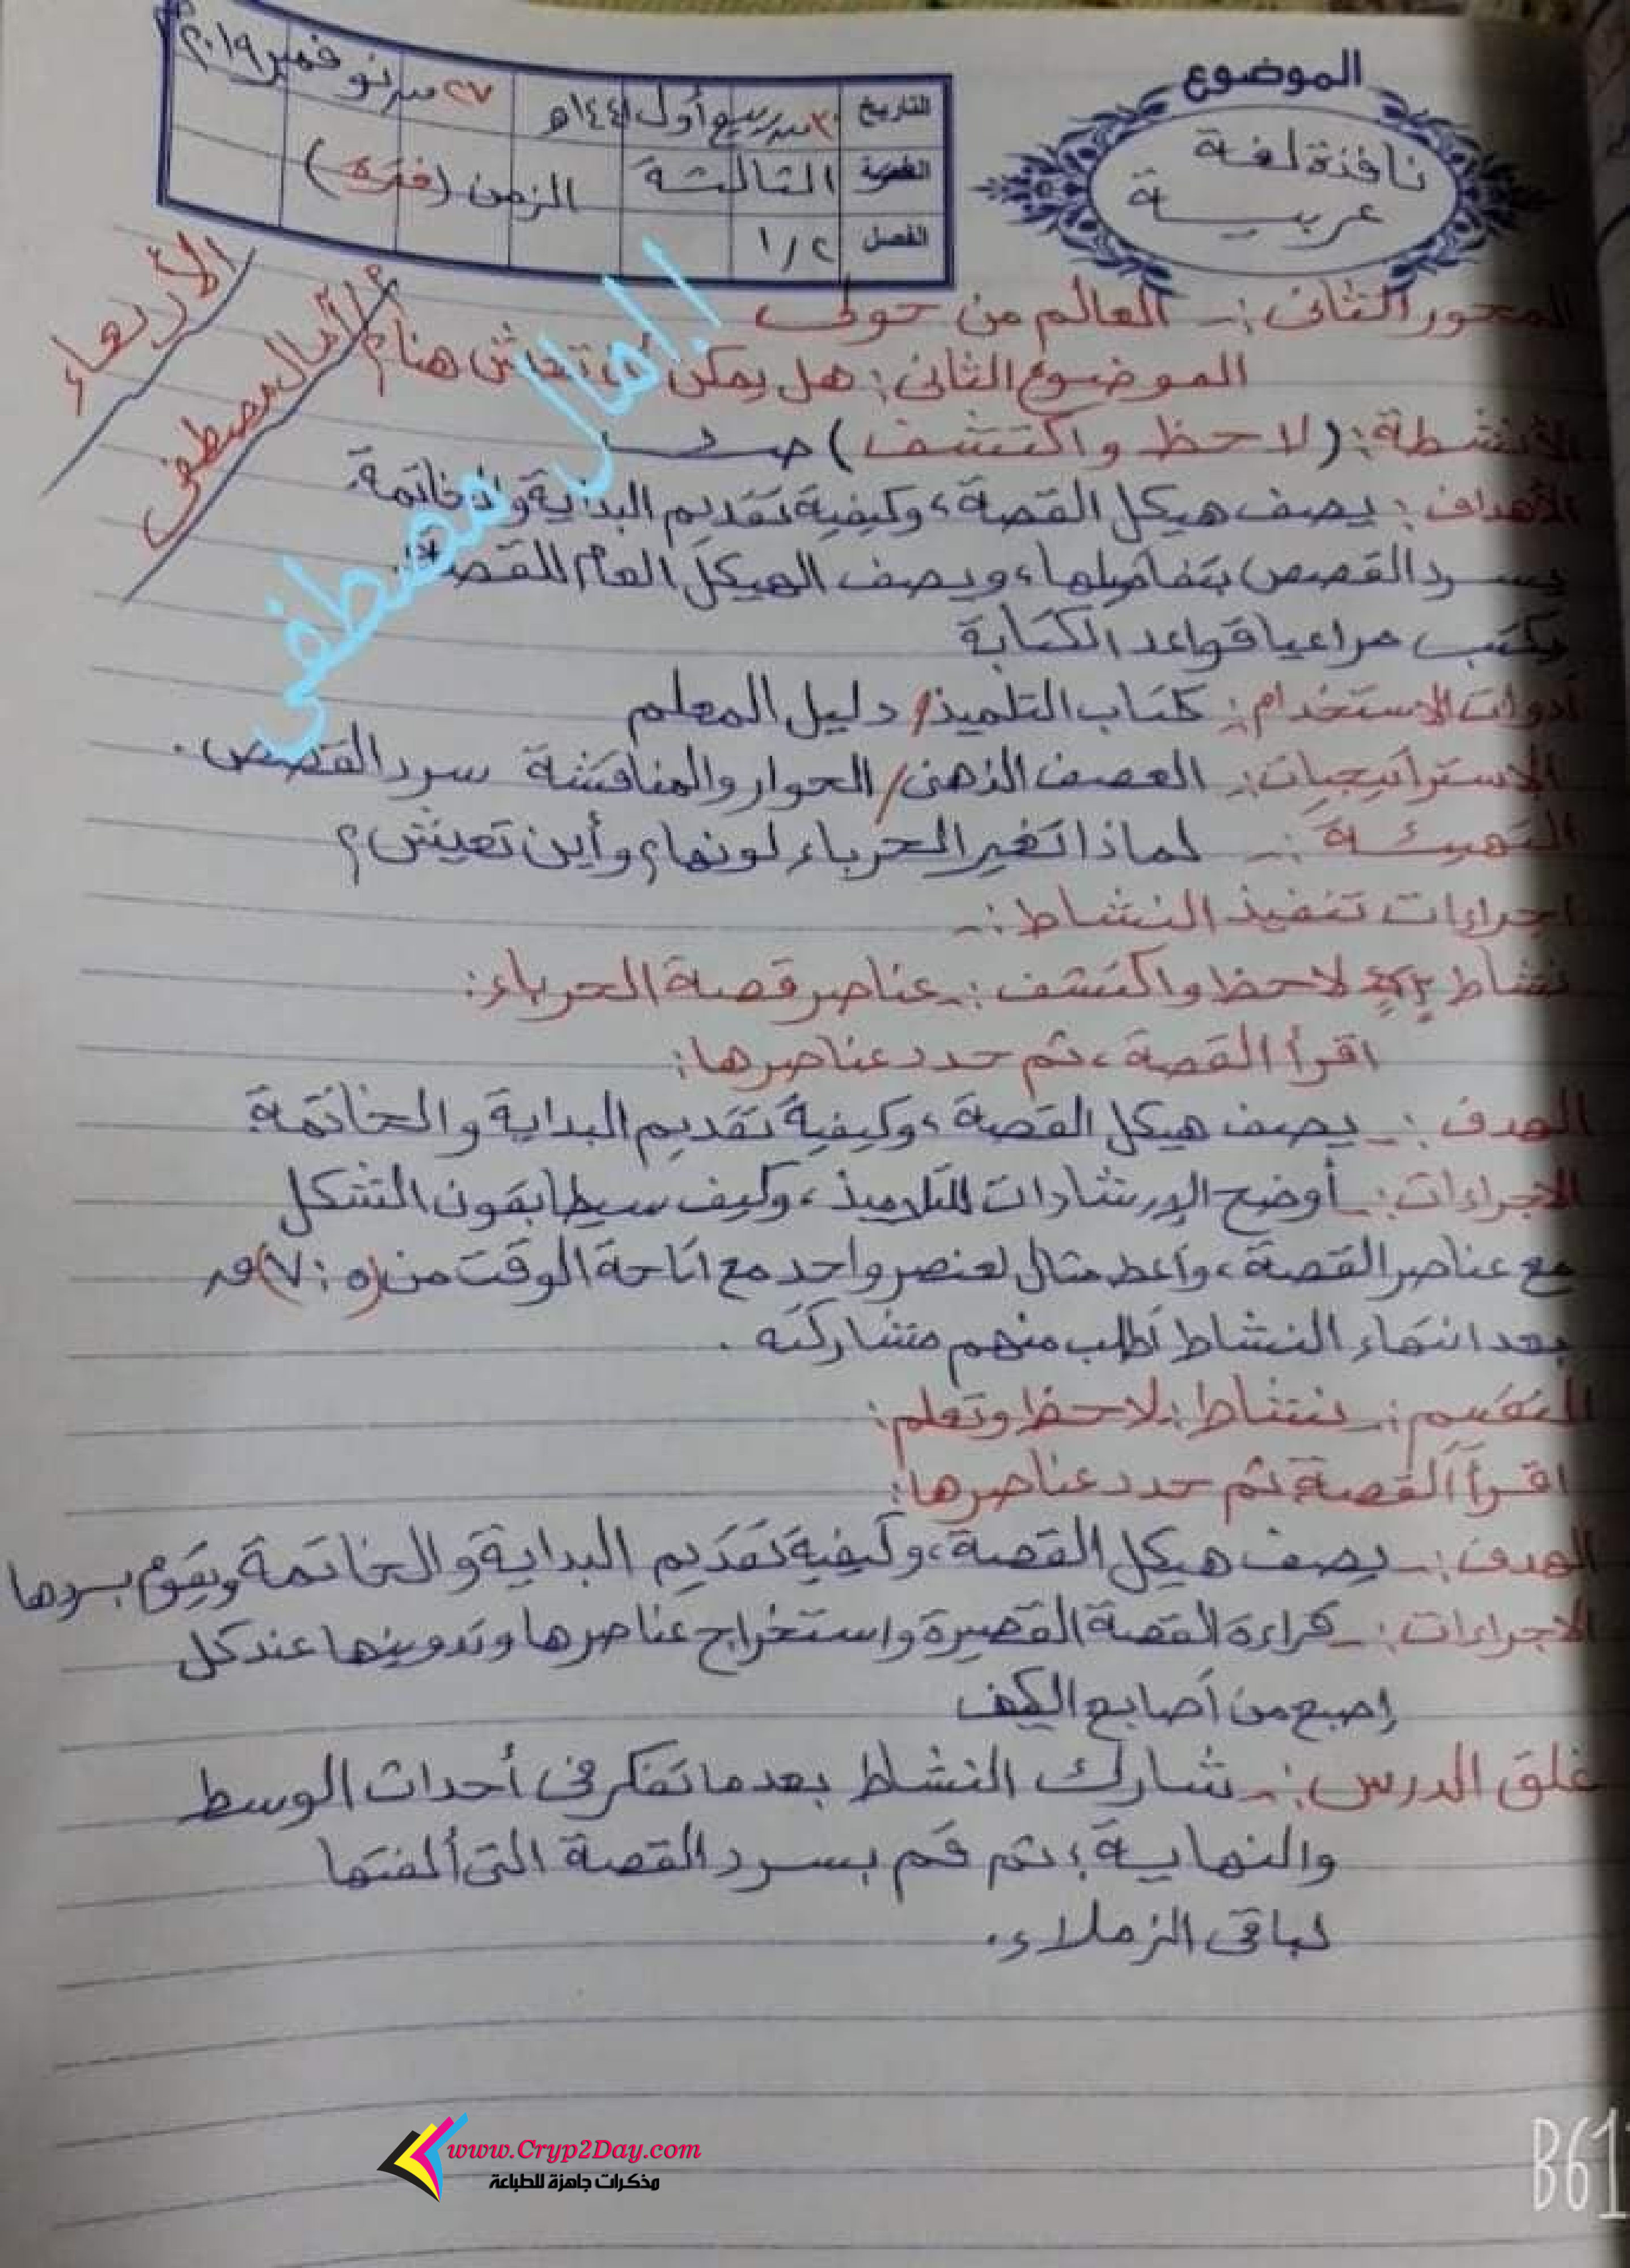 الموضوع
نافذة لغة
عربية
التاريخ ٣٠ من ربيع أول ١٤٤١هـ ٢٧ من نوفمبر ٢٠١٩م
الفترة الثالثة الزمن (فترة)
الفصل ١/٢
الأربعاء
آمال مصطفى
المحور الثانى :- العالم من حولى
الموضوع الثانى : هل يمكن أن تعش هنا ؟
الأنشطة : (لاحظ واكتشف) صـ
الأهداف : يصف هيكل القصة ، وكيفية تقديم البداية والخاتمة
يسرد القصص بتفاصيلها ، ويصف الهيكل العام للقصة .
يكتب مراعيا قواعد الكتابة
أدوات الاستخدام :- كتاب التلميذ / دليل المعلم
الاستراتيجيات :- العصف الذهنى / الحوار والمناقشة سرد القصص .
التهيئة :- لماذا تغير الحرباء لونها ؟ وأين تعيش ؟
اجراءات تنفيذ النشاط :-
نشاط لاحظ واكتشف :- عناصر قصة الحرباء :
اقرأ القصة ، ثم حدد عناصرها :
الهدف :- يصف هيكل القصة ، وكيفية تقديم البداية والخاتمة
الاجراءات :- أوضح الإرشادات للتلاميذ ، وكيف سيطابقون الشكل
مع عناصر القصة ، وأعط مثال لعنصر واحد مع اتاحة الوقت من (٥ : ٧) ق
بعد انتهاء النشاط أطلب منهم مشاركته .
التقيم :- نشاط : لاحظ وتعلم :
اقرأ القصة ثم حدد عناصرها :
الهدف :- يصف هيكل القصة ، وكيفية تقديم البداية والخاتمة ويقوم بسردها
الاجراءات :- قراءة القصة القصيرة واستخراج عناصرها وتدوينها عند كل
إصبع من أصابع الكف
غلق الدرس :- شارك النشاط بعد ما تفكر فى أحداث الوسط
والنهاية ؛ ثم قم بسرد القصة التى ألفتها
لباقى الزملاء .
www.Cryp2Day.com
مذكرات جاهزة للطباعة
B61